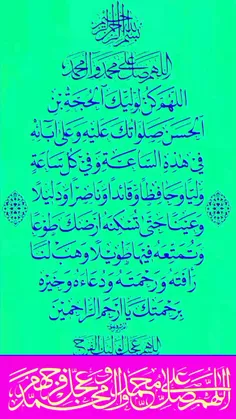 بسم الله الرحمن الرحيم
اللهم صل على محمد وآل محمد
اللّهُمَّ كُنْ لِوَلِيِّكَ الْحُجَّةِ بْنِ
الْحَسَنِ صَلَواتُكَ عَلَيْهِ وَعَلى آبائِهِ
في هذِهِ السّاعَةِ وَفي كُلِّ ساعَةٍ
وَلِيّاً وَحافِظاً وَقائِداً وَناصِراً وَدَليلاً
وَعَيْناً حَتّى تُسْكِنَهُ أَرْضَكَ طَوْعاً
وَتُمَتِّعَهُ فيها طَويلاً وَهَبْ لَنا
رَأْفَتَهُ وَرَحْمَتَهُ وَدُعاءَهُ وَخَيْرَهُ
بِرَحْمَتِكَ يا أَرْحَمَ الرّاحِمينَ
اللهم عجل لوليك الفرج
اللهم صل على محمد وآل محمد وعجل فرجهم